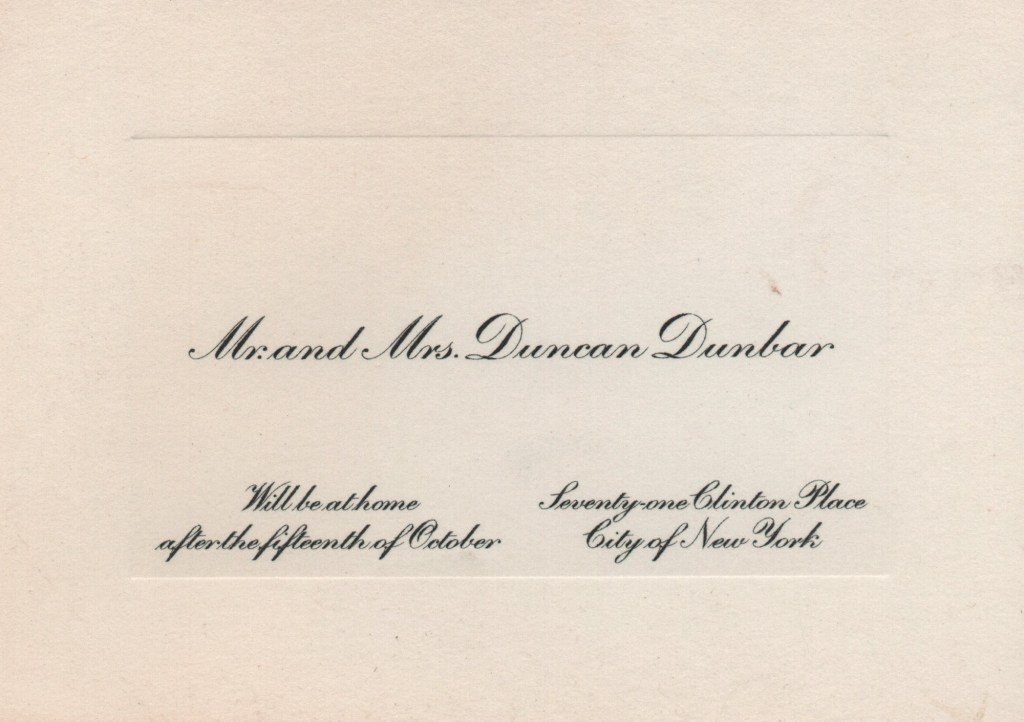 Mr. and Mrs. Duncan Dunbar
Will be at home
after the fifteenth of October
Seventy-one Clinton Place
City of New York